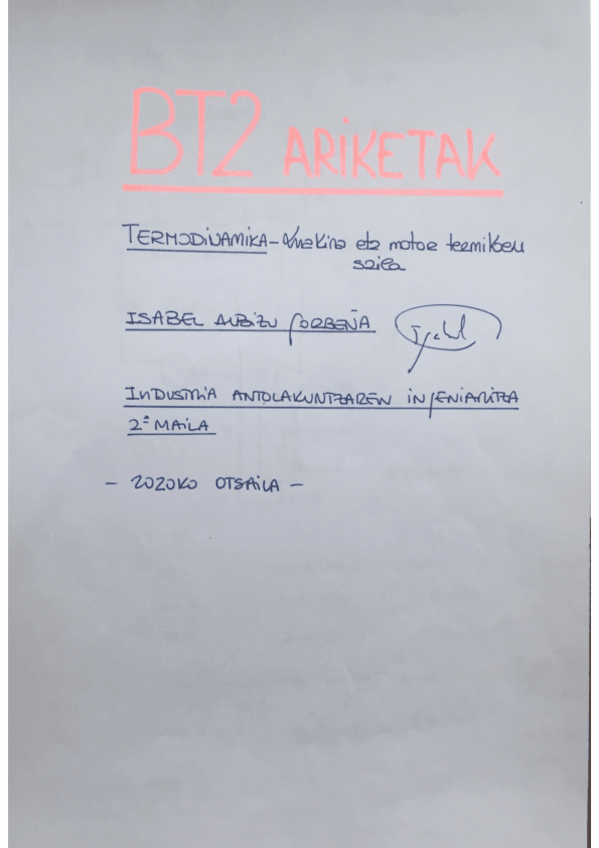 BT2 ARIKETAK
TERMODINAMIKA - Makina eta motor termikoen
saila
ISABEL ALBIZU GORBEÑA
Isabel
INDUSTRIA ANTOLAKUNTZAREN INGENIARITZA
2º MAILA
- 2020KO OTSAILA -